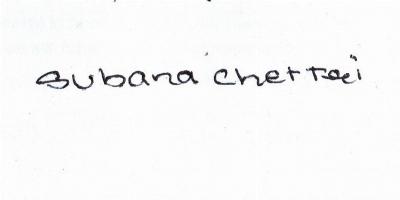 Subana Chettri